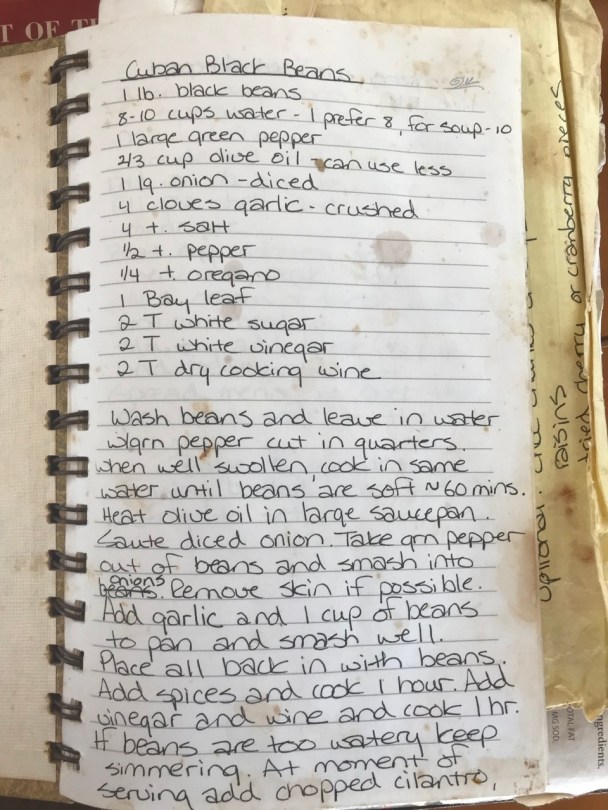 T OF T
Cuban Black Beans
1 lb. black beans
8-10 cups water - I prefer 8, for soup-10
1 large green pepper
2/3 cup olive oil - can use less
1 lg. onion - diced
4 cloves garlic - crushed
4 t. salt
1/2 t. pepper
1/4 t oregano
1 Bay leaf
2 T white sugar
2 T white vinegar
2 T dry cooking wine
Wash beans and leave in water
w/grn pepper cut in quarters.
when well swollen, cook in same
water until beans are soft ~60 mins.
Heat olive oil in large saucepan.
Saute diced onion. Take grn pepper
out of beans and smash into
onions
beans. Remove skin if possible.
Add garlic and 1 cup of beans
to pan and smash well.
Place all back in with beans.
Add spices and cook 1 hour. Add
vinegar and wine and cook 1 hr.
If beans are too watery keep
simmering. At moment of
serving add chopped cilantro,
optional:
raisins
dried cherry or cranberry pieces
ingredients.